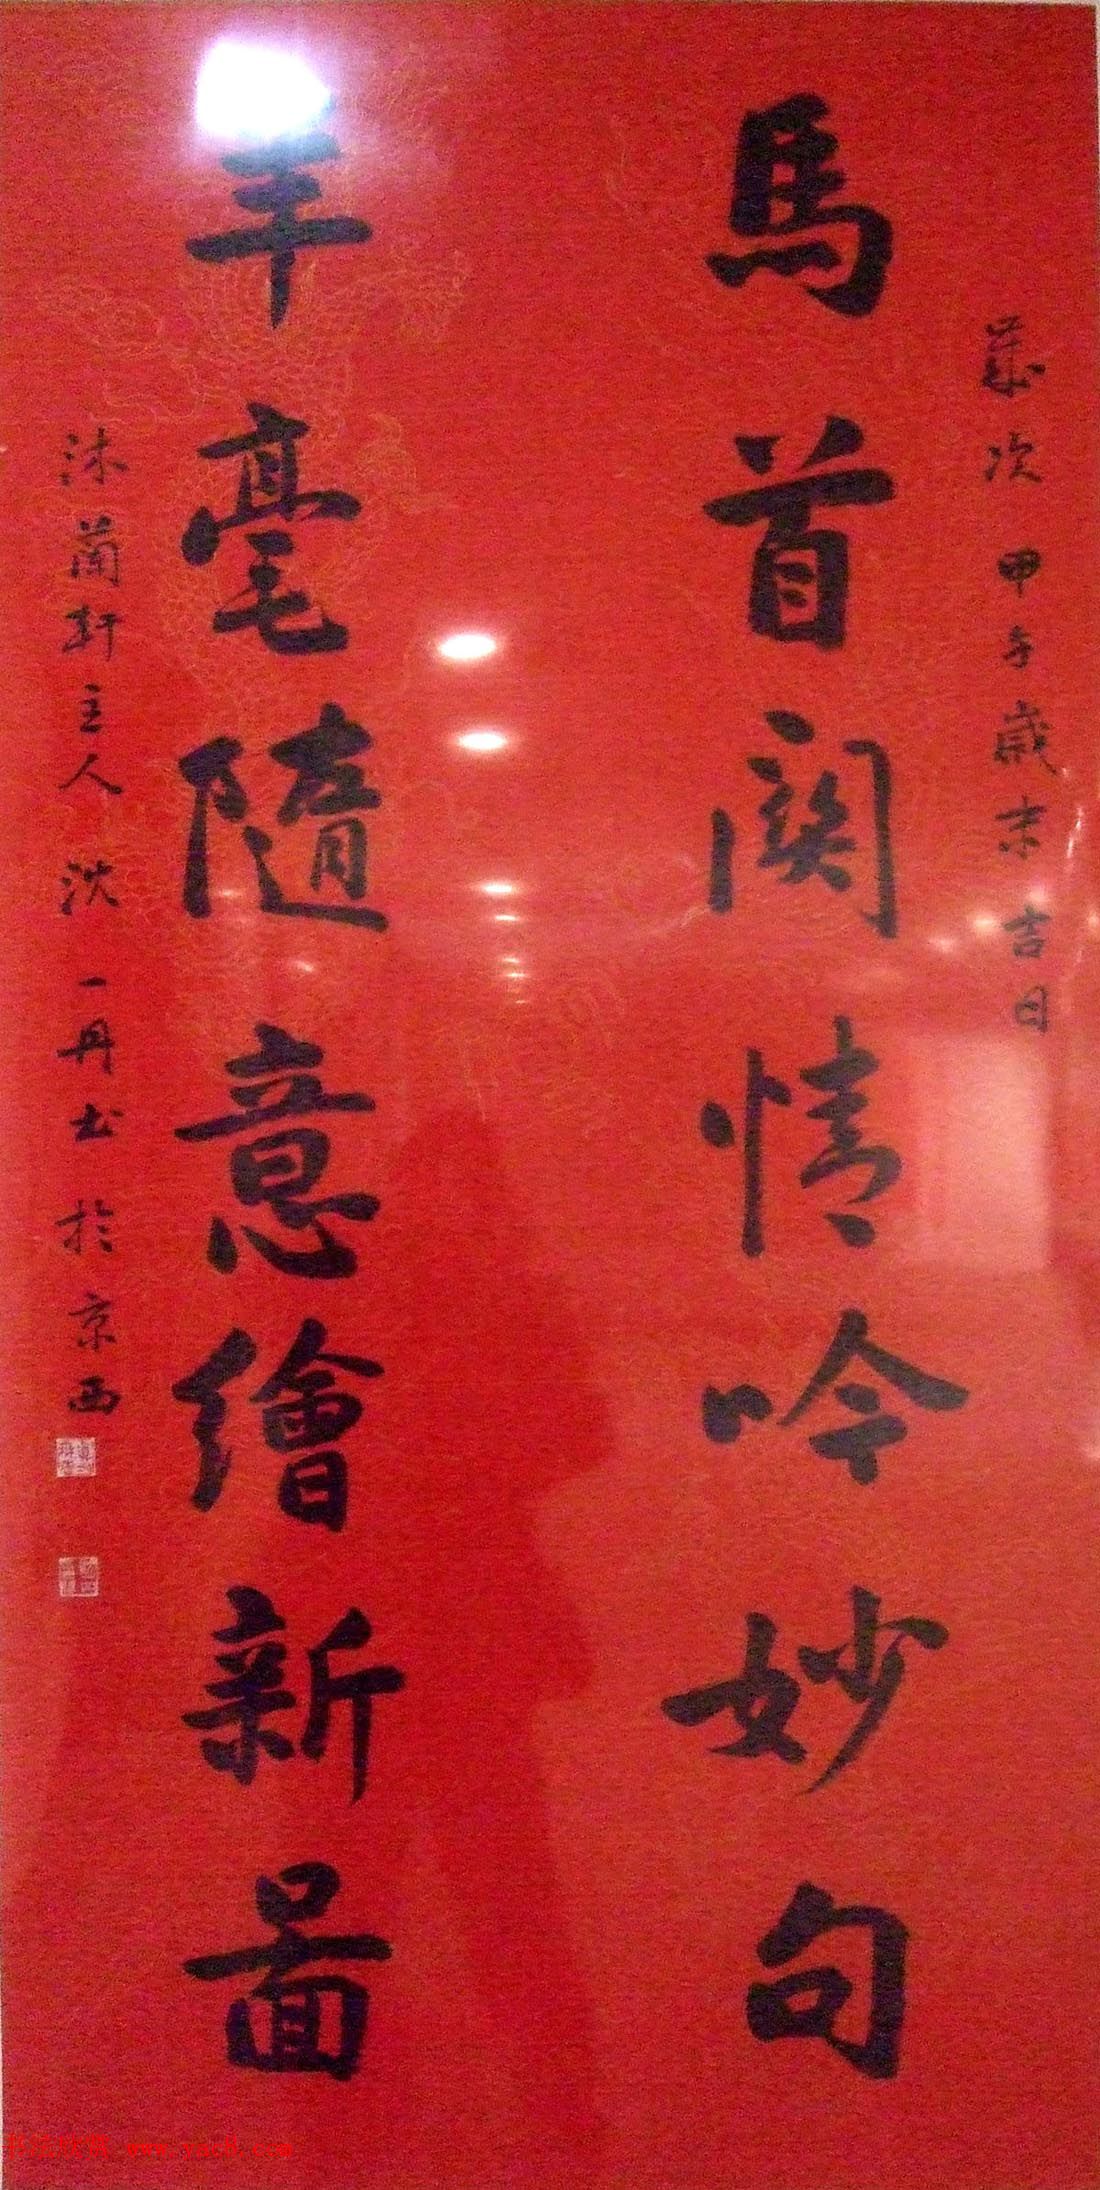 歲次甲午歲末吉日
馬首關情吟妙句
羊毫隨意繪新圖
沐蘭軒主人沈一丹書於京西
www.yac8.com